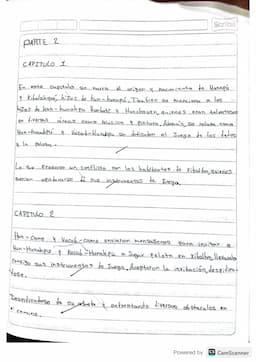 Scribe
PARTE 2
CAPITULO 1
En este capitulo se narra el origen y nacimiento de Hunahpú
e Ixbalanqué, hijos de Hun-Hunahpú. Tambien se menciona a los
hijos de Hun-Hunahpú Hunbatz y Hunchouen, quienes eran talentosos
en diversas áreas como musica y pintura. Además, se relata como
Hun-Hunahpú y Vucub-Hunahpú se dedicaban al Juego de los dados
y la pelota.
Lo que provocó un conflicto con los habitantes de Xibalbá, quienes
querian apoderarse de sus instrumentos de Juego.
CAPITULO 2
Hun-Came y Vucub-Came enviaron mensajeros para invitar a
Hun-Hunahpú y Vucub-Hunahpú a Jugar pelota en Xibalbá, llevando
consigo sus instrumentos de Juego. Aceptaron la invitación, despidien-
dose.
de su abuela y enfrentando diversos obstaculos en
el camino.
Powered by CamScanner